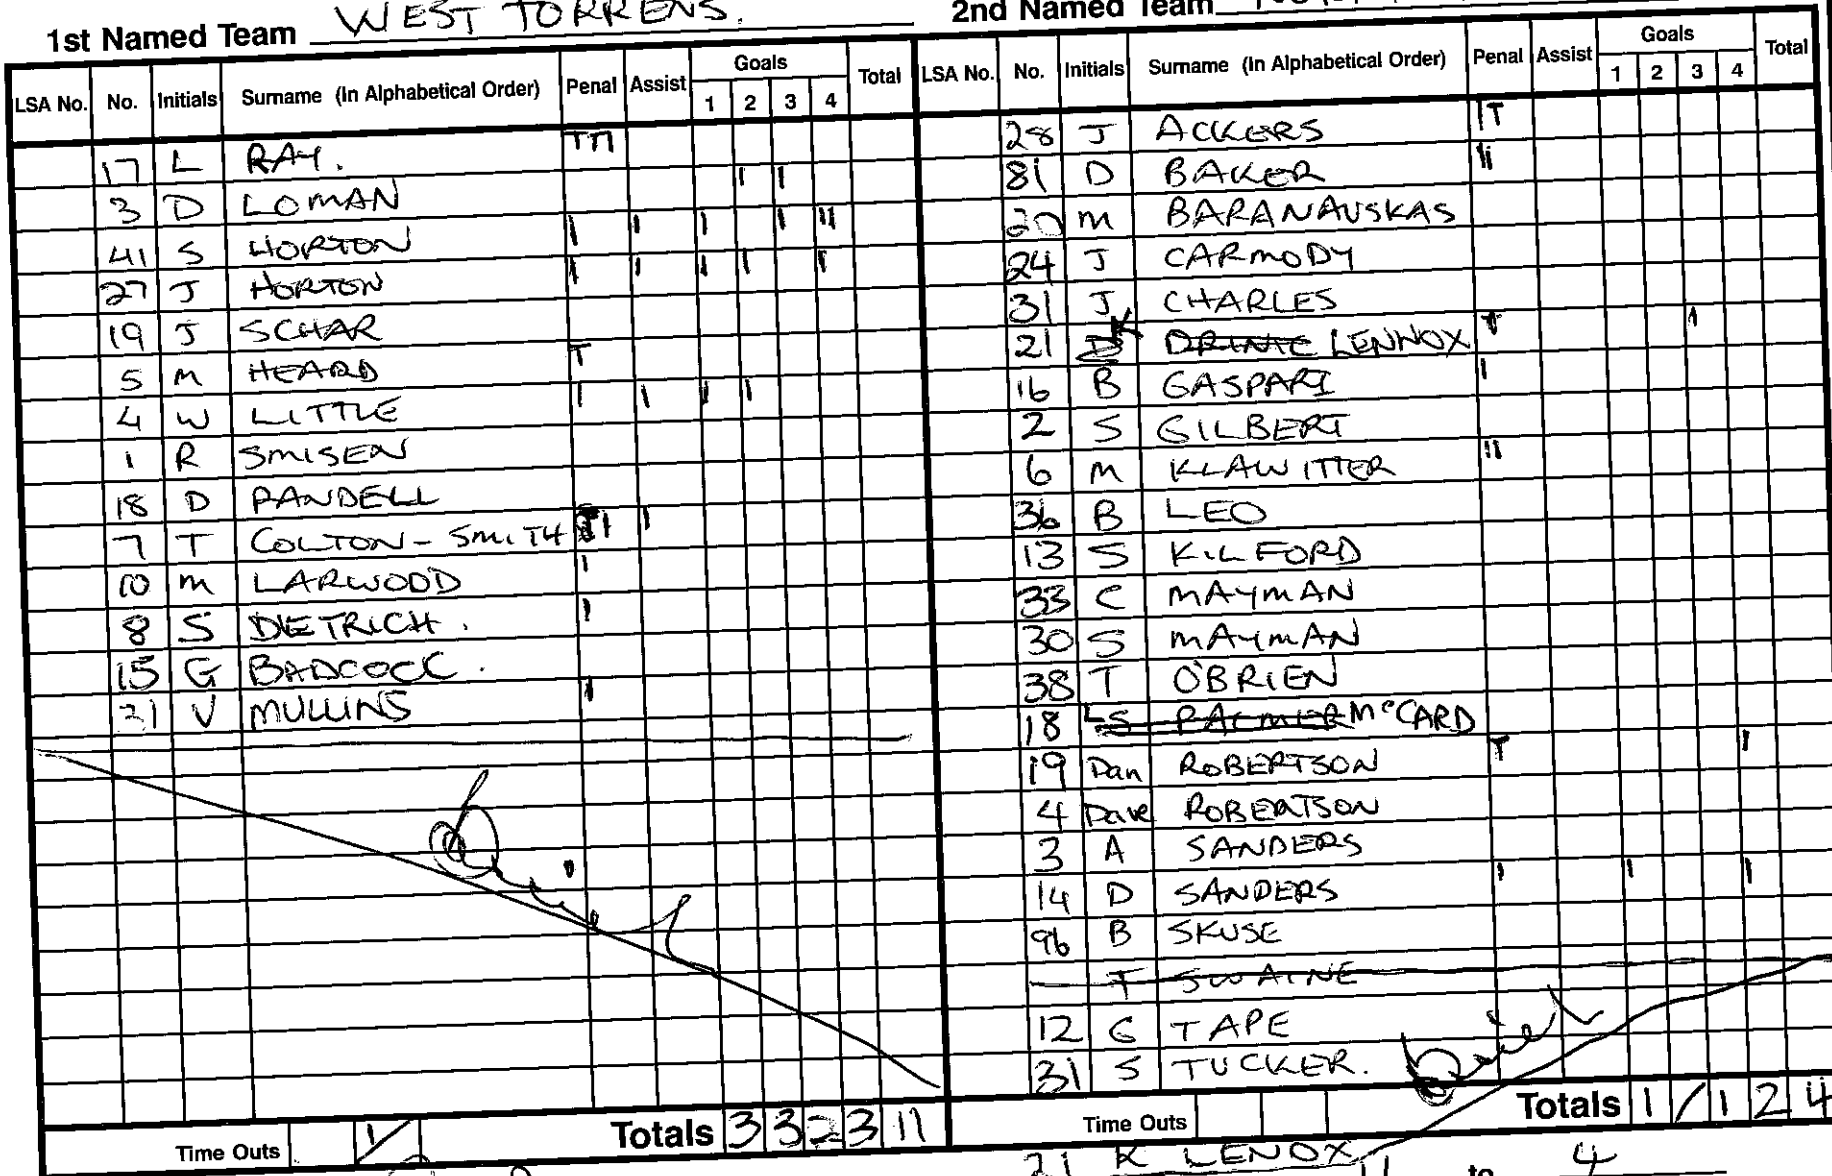 1st Named Team WEST TORRENS.
2nd Named Team
LSA No. No. Initials Surname (In Alphabetical Order) Penal Assist Goals 1 2 3 4 Total
17 L RAY. TTT
3 D LOMAN I I
41 S HORTON I I I I II
27 J HORTON I I I I I
19 J SCHAR
5 M HEARD T
4 W LITTLE I I I I
1 R SMISEN
18 D PANDELL
7 T COLTON - SMITH I I
10 M LARWOOD I
8 S DIETRICH. I
15 G BADCOCK.
21 V MULLINS I
Time Outs 1/ Totals 3 3 2 3 11
LSA No. No. Initials Surname (In Alphabetical Order) Penal Assist Goals 1 2 3 4 Total
28 J ACKERS IT
81 D BAKER II
20 M BARANAUSKAS
24 J CARMODY
31 J CHARLES
21 K LENNOX T I
16 B GASPARI I
2 S GILBERT
6 M KLAWITTER II
36 B LEO
13 S KILFORD
33 C MAYMAN
30 S MAYMAN
38 T O'BRIEN
18 L S PALMER McCARD
19 Dan ROBERTSON T I
4 Dave ROBERTSON
3 A SANDERS
14 D SANDERS I I I
96 B SKUSE
T SWAINE
12 G TAPE
31 S TUCKER.
Time Outs Totals 1 / 1 2 4
21 K LENOX 11 to 4